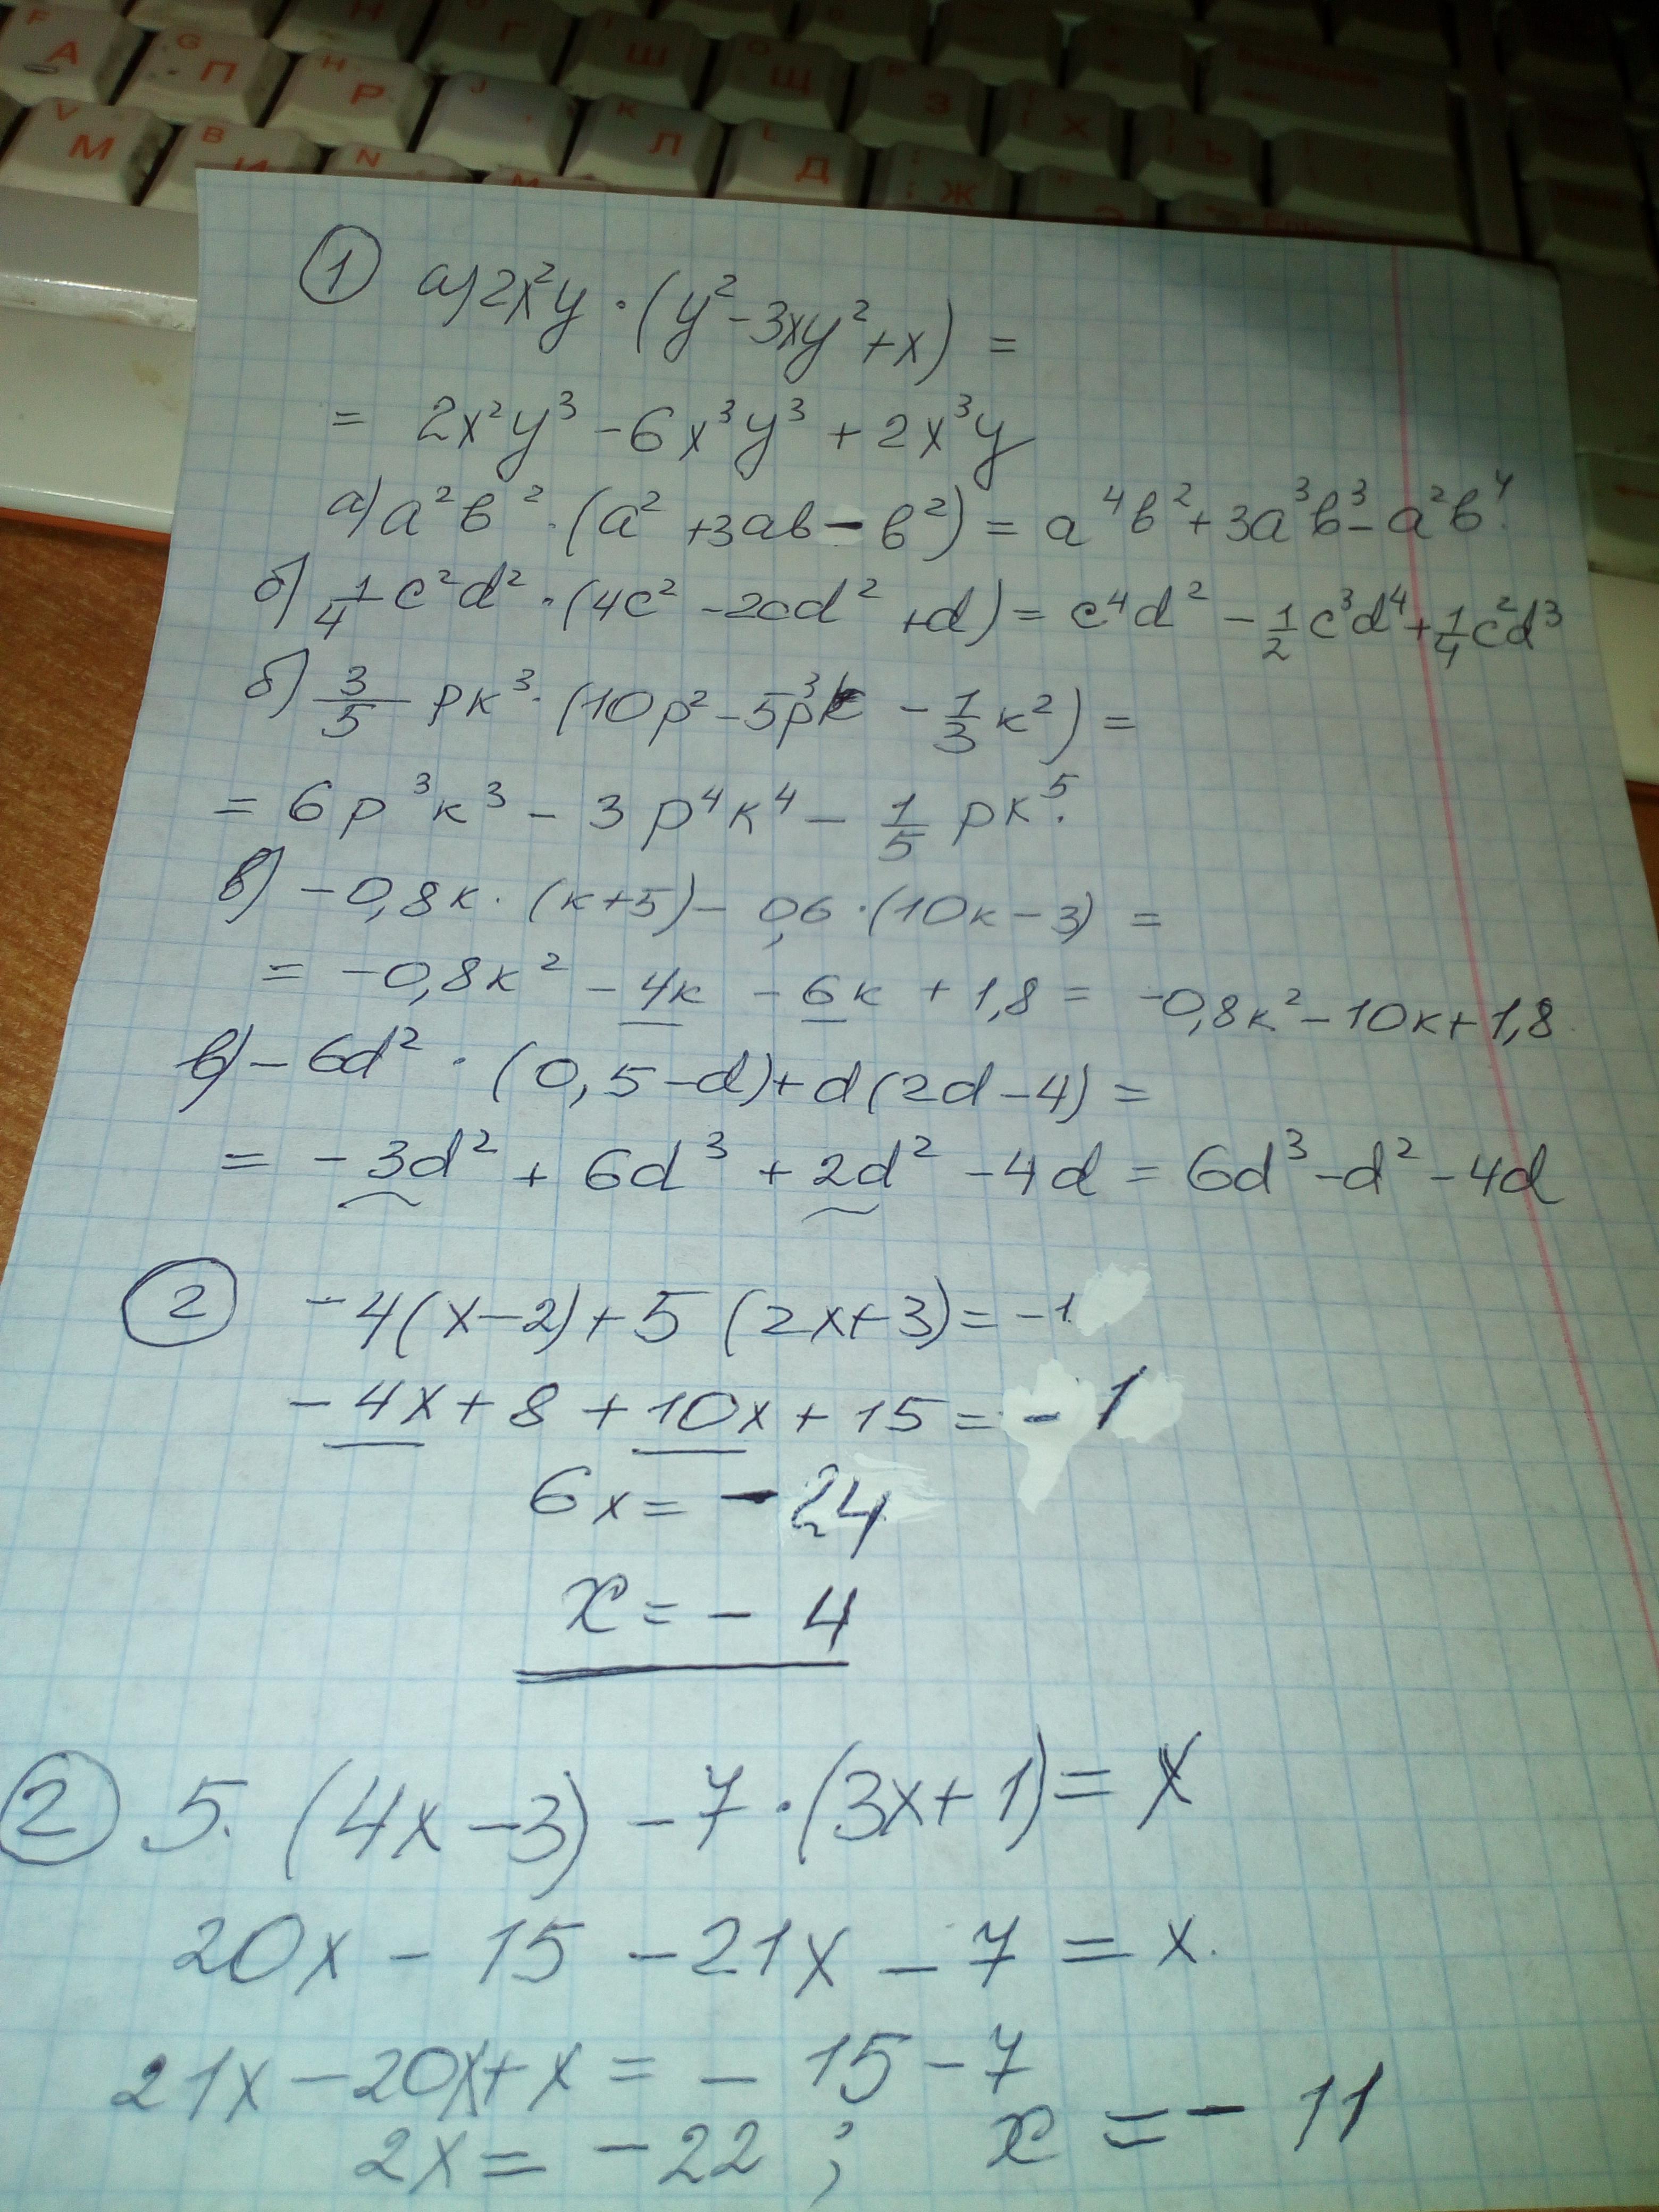 А П Н Р Г Ш Щ З Х Ъ
М В И К Л Д Ж Э
① а) 2x²y · (y² - 3xy² + x) =
= 2x²y³ - 6x³y³ + 2x³y
а) a²b² · (a² + 3ab - b²) = a⁴b² + 3a³b³ - a²b⁴.
б) 1/4 c²d² · (4c² - 2cd² + d) = c⁴d² - 1/2 c³d⁴ + 1/4 c²d³
б) 3/5 pk³ · (10p² - 5p³k - 1/3 k²) =
= 6p³k³ - 3p⁴k⁴ - 1/5 pk⁵.
в) -0,8k · (k+5) - 0,6 · (10k - 3) =
= -0,8k² - 4k - 6k + 1,8 = -0,8k² - 10k + 1,8
в) -6d² · (0,5 - d) + d(2d - 4) =
= -3d² + 6d³ + 2d² - 4d = 6d³ - d² - 4d
② -4(x-2) + 5(2x+3) = -1
-4x + 8 + 10x + 15 = -1
6x = -24
x = -4
② 5. (4x - 3) - 7 · (3x + 1) = x
20x - 15 - 21x - 7 = x.
21x - 20x + x = - 15 - 7
2x = -22 ; x = - 11